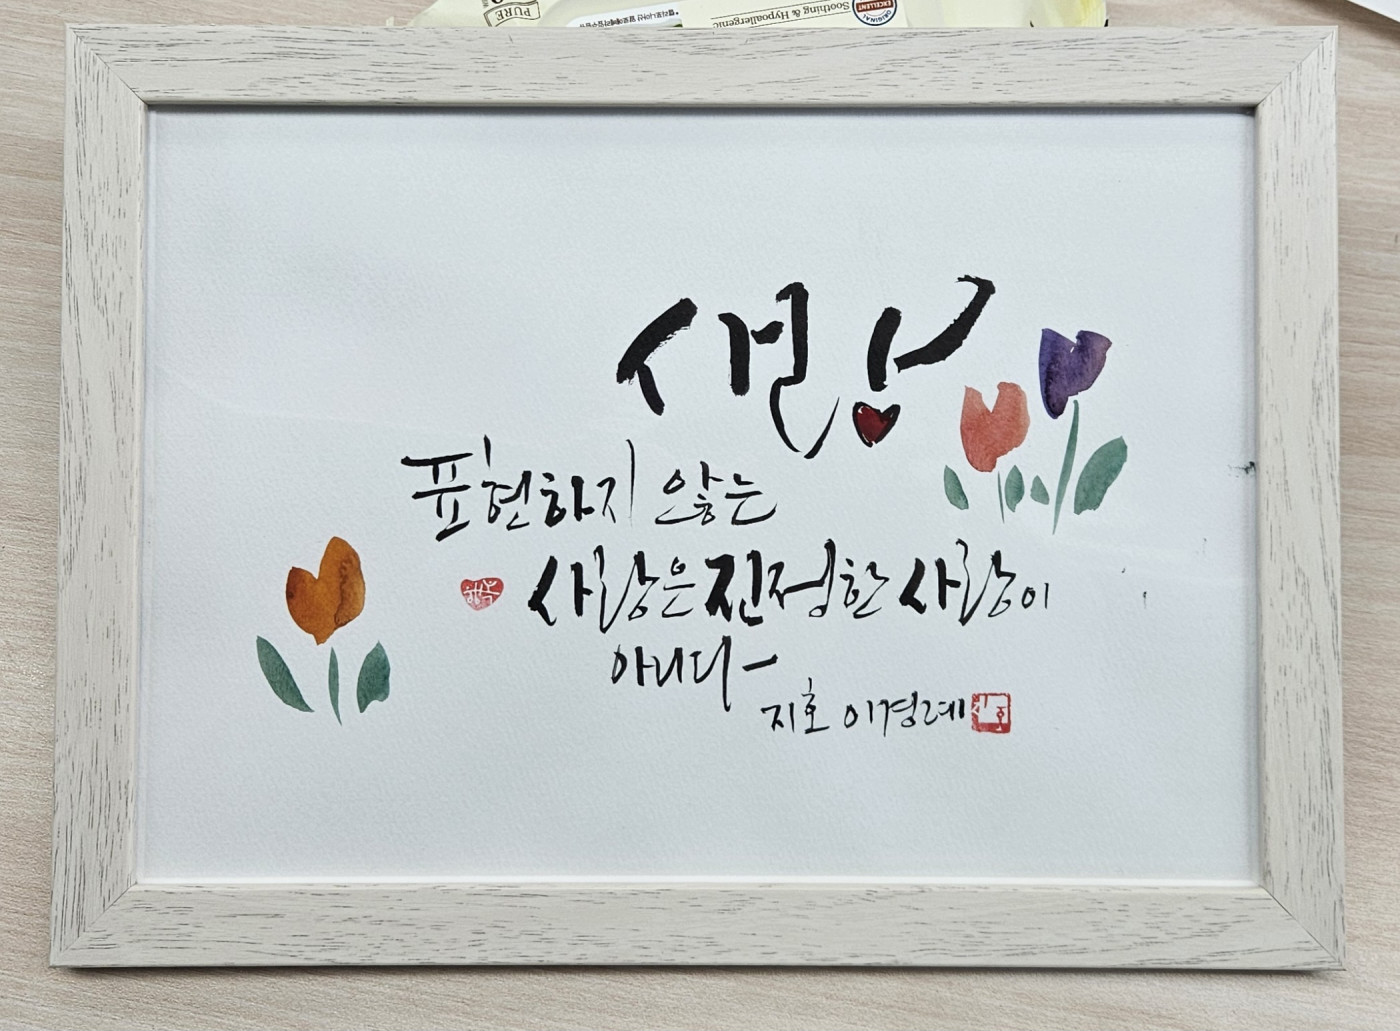 PURE
Soothing & Hypoallergenic
ORIGINAL
EXCELLENT
표현하지 않는
사랑은 진정한 사랑이
아니다
지호 이경례